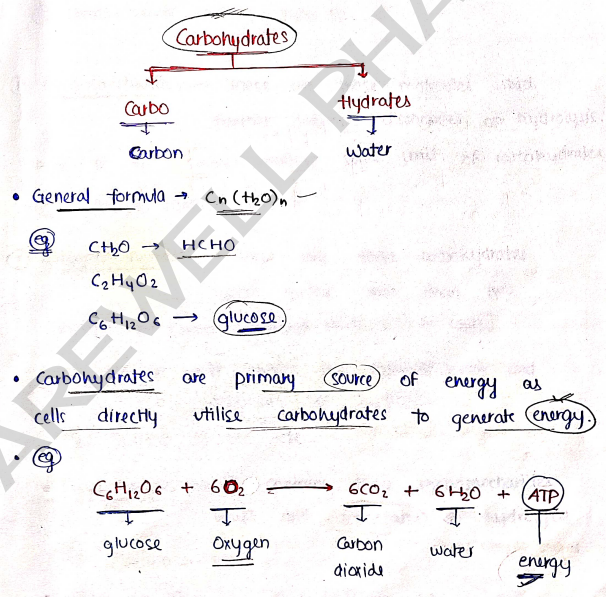 Carbohydrates
Carbo Hydrates
Carbon Water
• General formula → Cn(H2O)n –
eg CH2O → HCHO
C2H4O2
C6H12O6 → glucose.
• Carbohydrates are primary source of energy as
cells directly utilise carbohydrates to generate energy.
• eg
C6H12O6 + 6O2 → 6CO2 + 6H2O + ATP
glucose Oxygen Carbon dioxide water energy
AREWELL PHA